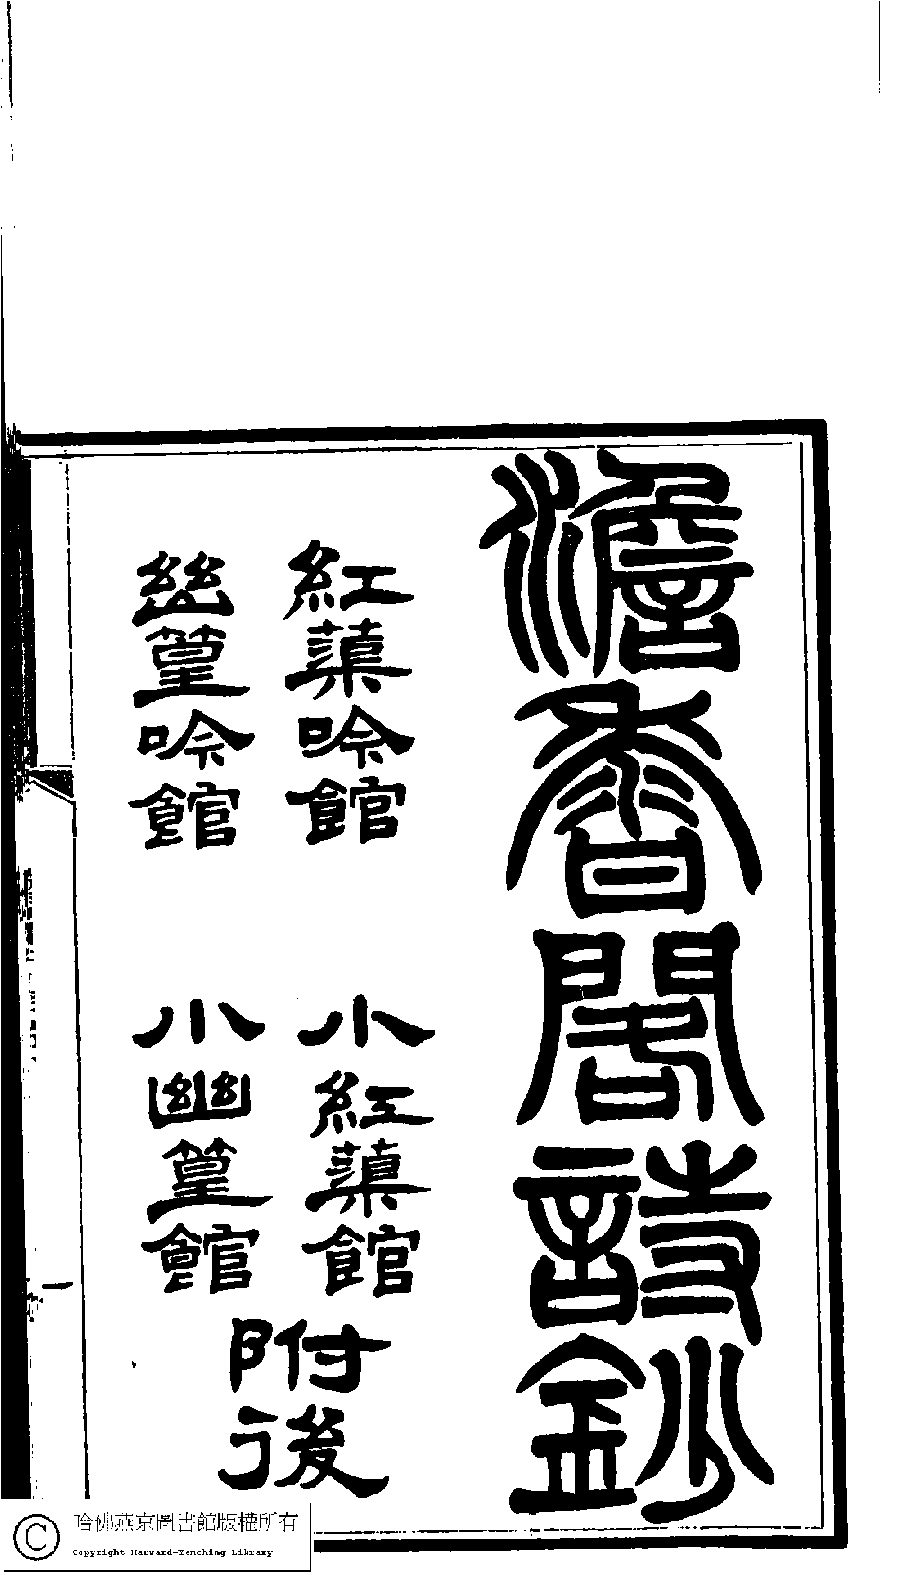 澹香閣詩鈔
紅蕖吟館 小紅蕖館
幽篁吟館 小幽篁館
附後
哈佛燕京圖書館版權所有
Copyright Harvard-Yenching Library